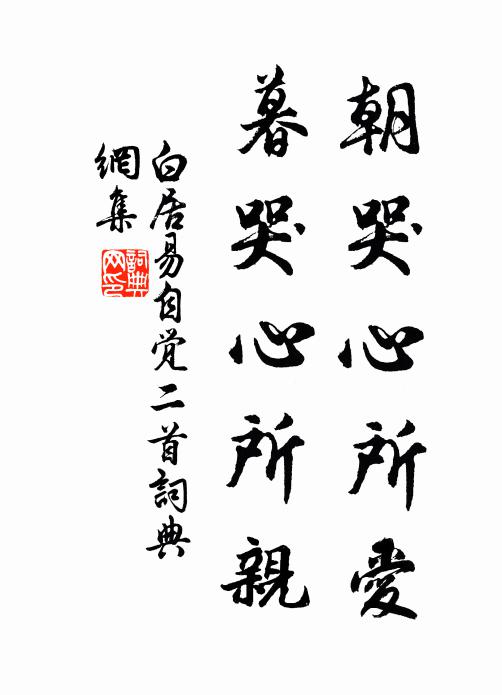 朝哭心所愛
暮哭心所親
白居易自觉二首詞典
網集
詞典网印